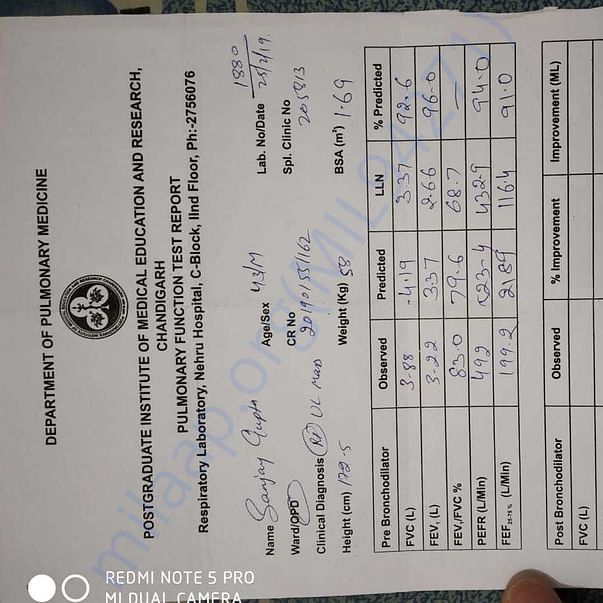 DEPARTMENT OF PULMONARY MEDICINE
POSTGRADUATE INSTITUTE OF MEDICAL EDUCATION AND RESEARCH,
CHANDIGARH
PULMONARY FUNCTION TEST REPORT
Respiratory Laboratory, Nehru Hospital, C-Block, IInd Floor, Ph:-2756076
Name Sanjay Gupta Age/Sex 43/M Lab. No/Date 1880 25/2/19
Ward/OPD CR No 201901551162 Spl. Clinic No 205813
Clinical Diagnosis (Rt) UL mass
Height (cm) 172.5 Weight (Kg) 58 BSA (m²) 1.69
Pre Bronchodilator Observed Predicted LLN % Predicted
FVC (L) 3.88 4.19 3.37 92.6
FEV₁ (L) 3.22 3.37 2.66 96.0
FEV₁/FVC % 83.0 79.6 68.7 —
PEFR (L/Min) 492 523.4 432.9 94.0
FEF 25-75 % (L/Min) 199.2 218.9 116.4 91.0
Post Bronchodilator Observed % Improvement Improvement (ML)
FVC (L)
milaap.org(MIL94271)
REDMI NOTE 5 PRO
MI DUAL CAMERA